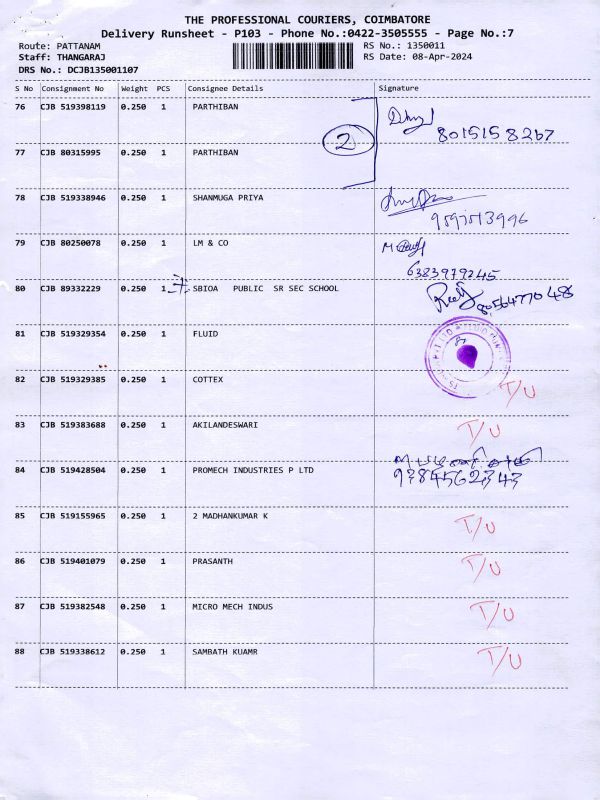 THE PROFESSIONAL COURIERS, COIMBATORE
Delivery Runsheet - P103 - Phone No.:0422-3505555 - Page No.:7
Route: PATTANAM RS No.: 1350011
Staff: THANGARAJ RS Date: 08-Apr-2024
DRS No.: DCJB135001107
S No Consignment No Weight PCS Consignee Details Signature
76 CJB 519398119 0.250 1 PARTHIBAN
2 8015158267
77 CJB 80315995 0.250 1 PARTHIBAN
78 CJB 519338946 0.250 1 SHANMUGA PRIYA
9597513996
79 CJB 80250078 0.250 1 LM & CO
6383979245
80 CJB 89332229 0.250 1 SBIOA PUBLIC SR SEC SCHOOL 8056477048
81 CJB 519329354 0.250 1 FLUID
82 CJB 519329385 0.250 1 COTTEX T/U
83 CJB 519383688 0.250 1 AKILANDESWARI T/U
84 CJB 519428504 0.250 1 PROMECH INDUSTRIES P LTD 9784562343
85 CJB 519155965 0.250 1 2 MADHANKUMAR K T/U
86 CJB 519401079 0.250 1 PRASANTH T/U
87 CJB 519382548 0.250 1 MICRO MECH INDUS T/U
88 CJB 519338612 0.250 1 SAMBATH KUAMR T/U